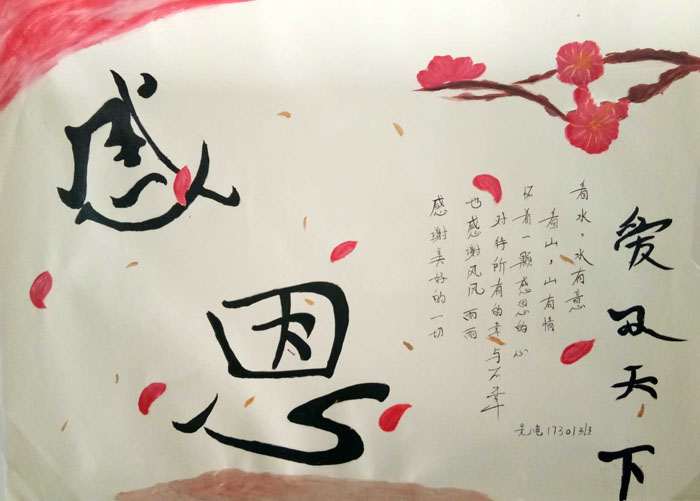 感恩
爱及天下
看水，水有意
看山，山有情
怀着一颗感恩的心
对待所有的幸与不幸
也感谢风风雨雨
感谢美好的一切
光电17301班